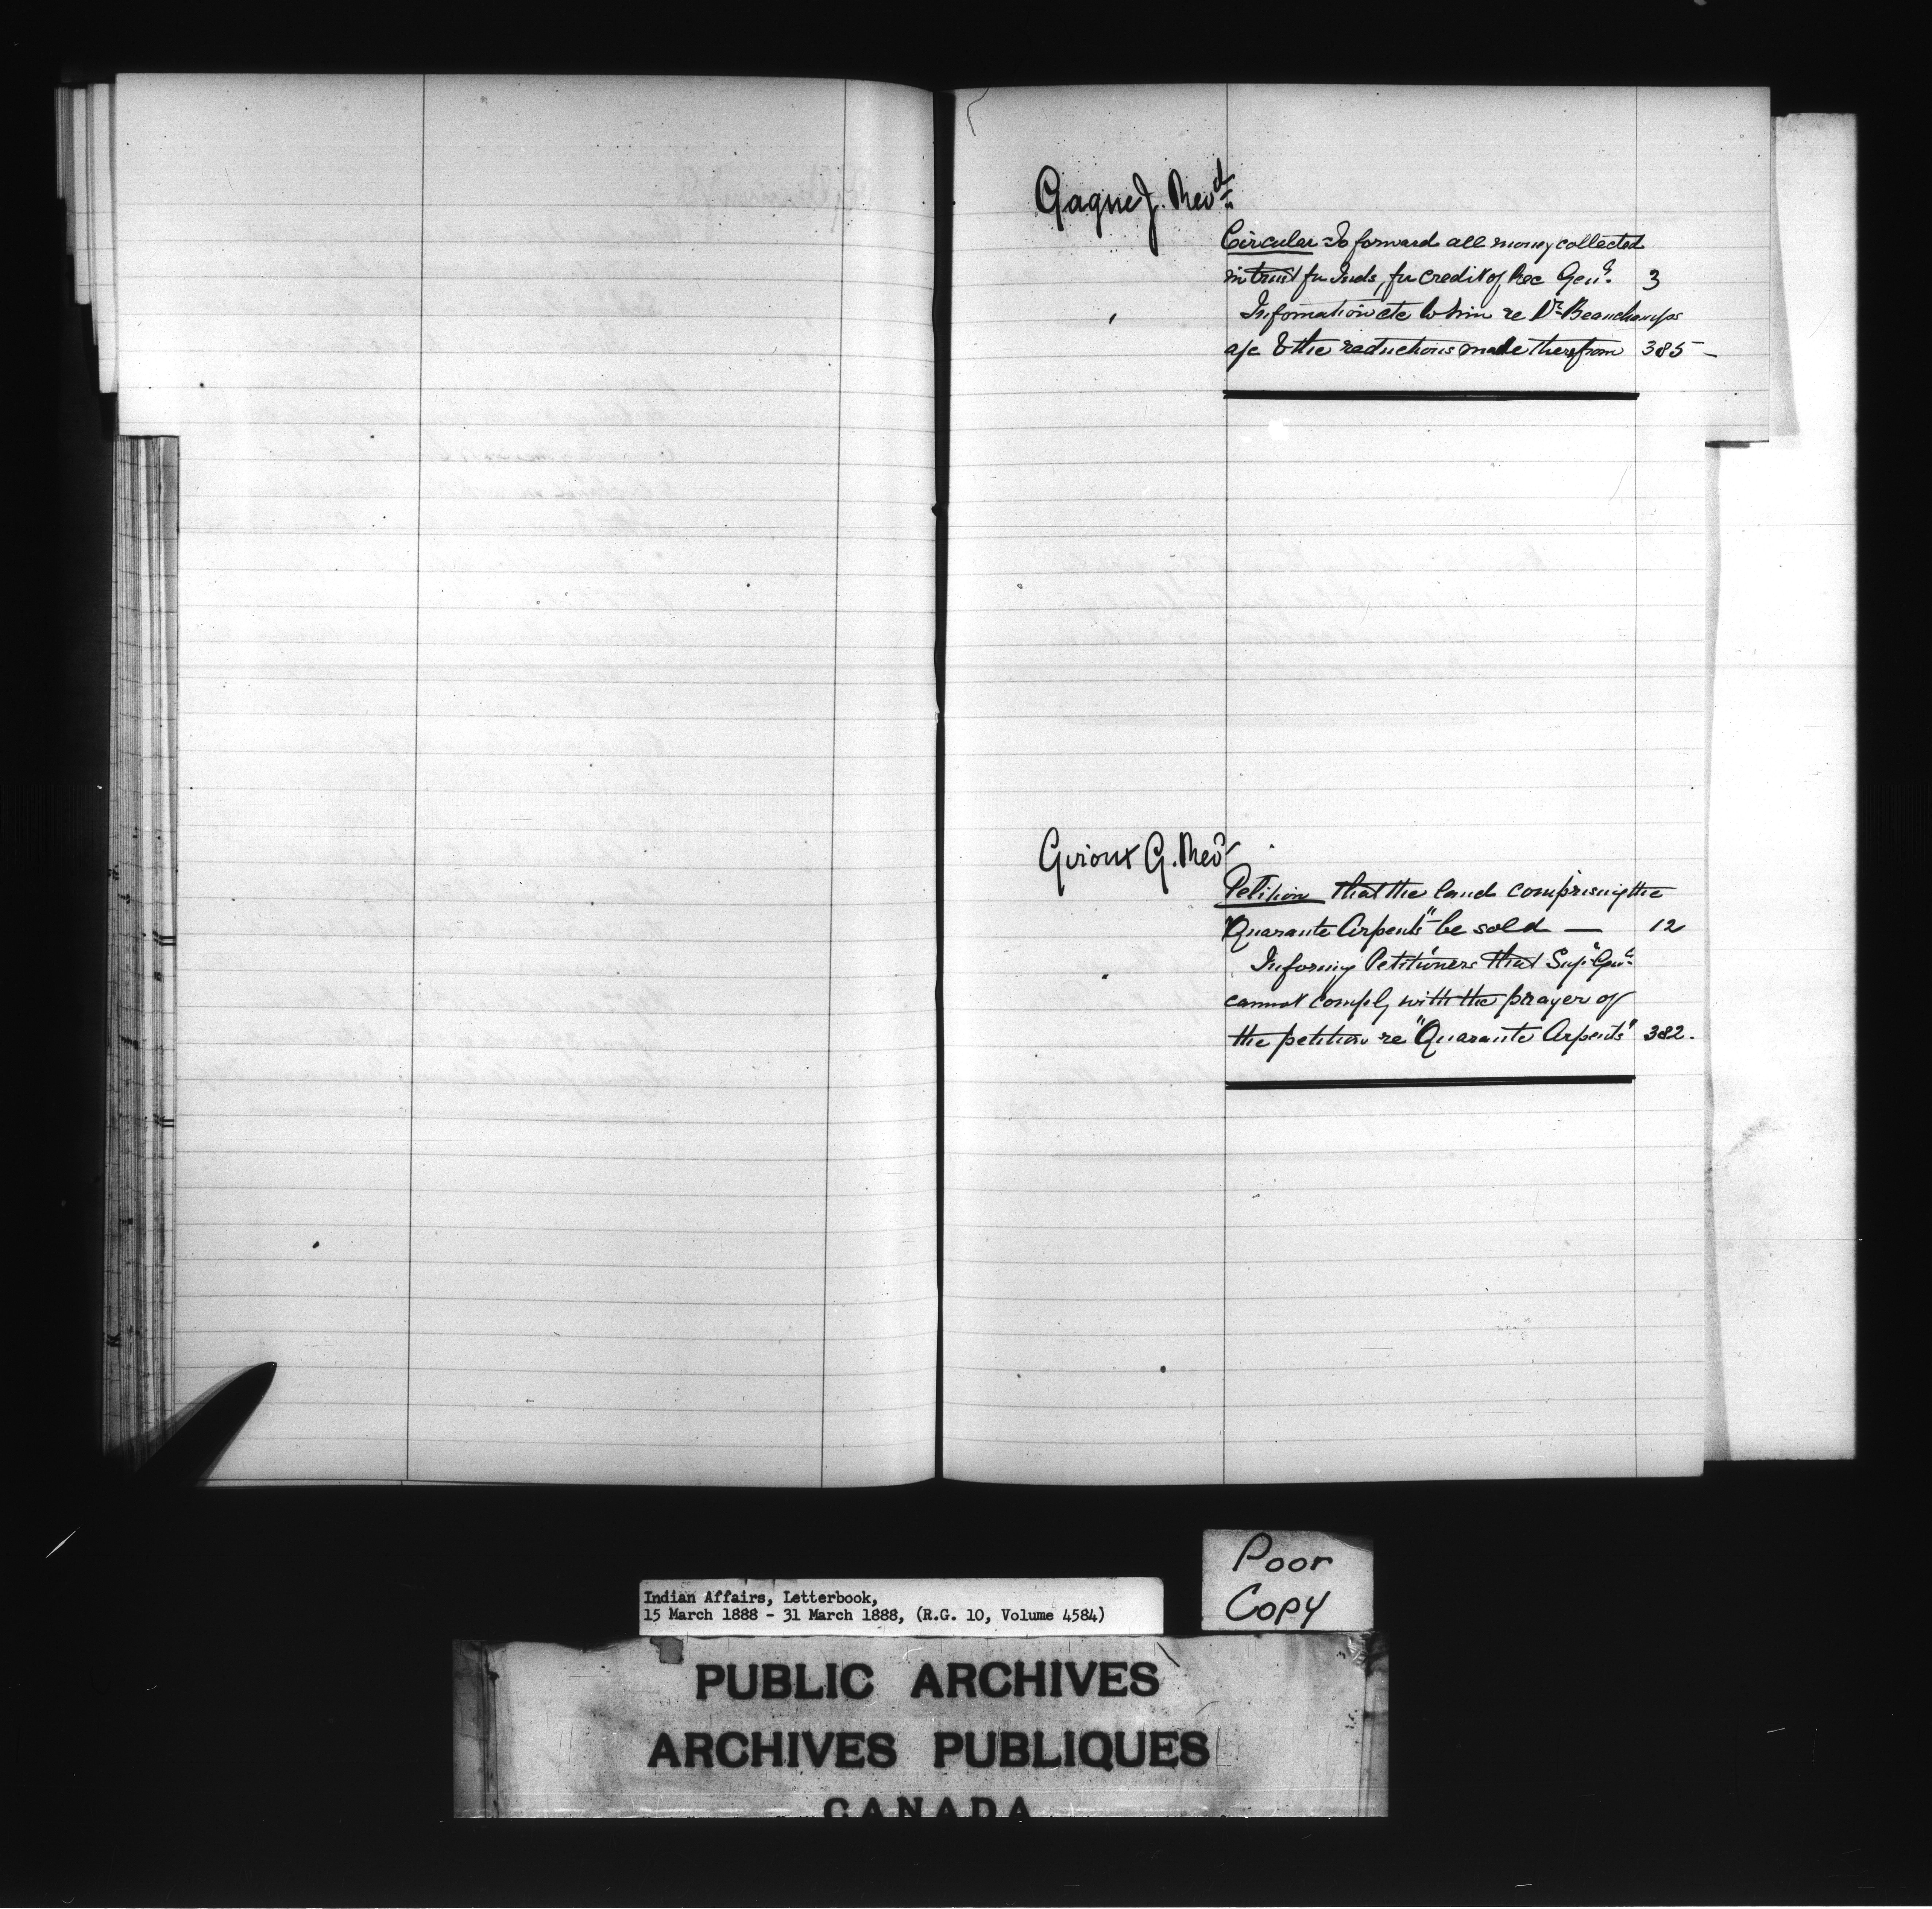 Gagne J. Revd
Circular To forward all money collected
in trust for Inds, for credit of Rec Genl. 3
Information etc to him re Dr. Beauchamps
a/c & the reductions made therefrom 385 -
Giroux G. Revd
Petition that the land comprising the
"Quarante Arpents" be sold — 12
Informing Petitioners that Sup. Genl.
cannot comply with the prayer of
the petition re "Quarante Arpents" 382.
Poor
Copy
Indian Affairs, Letterbook,
15 March 1888 - 31 March 1888, (R.G. 10, Volume 4584)
PUBLIC ARCHIVES
ARCHIVES PUBLIQUES
CANADA